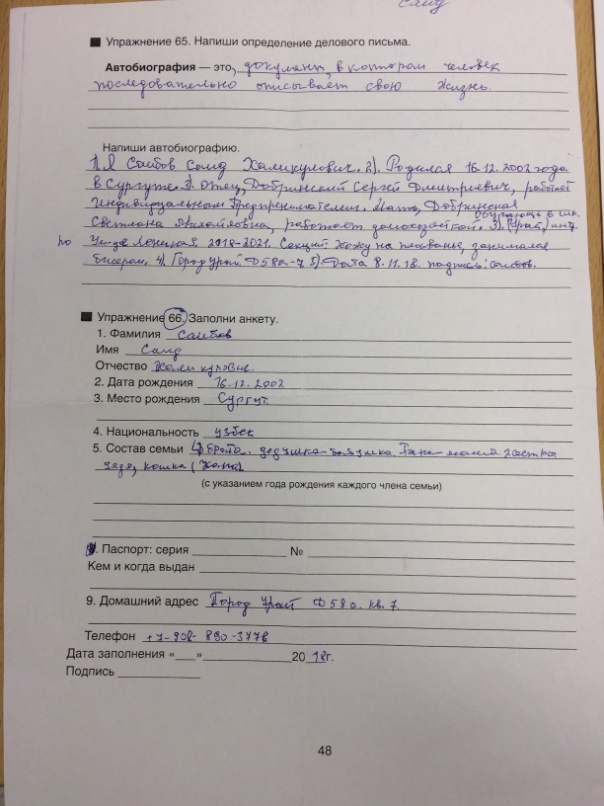 Саид
Упражнение 65. Напиши определение делового письма.
Автобиография — это, документ, в котором человек
последовательно описывает свою жизнь.
Напиши автобиографию.
1) Я Саибов Саид Халикулович. 2). Родился 16.12.2002 года
в Сургуте. Отец, Добринский Сергей Дмитриевич, работает
Индивидуальным Предпренимателем. Мать, Добринская
Обучаюсь в шк.
Светлана Михайловна, работает домохозяйкой. 3). (Урай),
по 2018-2021. Секций Хожу на плаванье, занимался
бисером. 4). Город Урай Д58а-7. 5) Дата 8.11.18. подпись: Саибов.
Упражнение 66. Заполни анкету.
1. Фамилия Саибов
Имя Саид
Отчество Халикулович.
2. Дата рождения 16.12.2002
3. Место рождения Сургут.
4. Национальность узбек
5. Состав семьи брата. дедушка-бабушка. Папа-мама
дядя, кошка
(с указанием года рождения каждого члена семьи)
. Паспорт: серия №
Кем и когда выдан
9. Домашний адрес Город Урай Д58а. кв. 7.
Телефон +7-908-890-3778
Дата заполнения « » 2018г.
Подпись
48